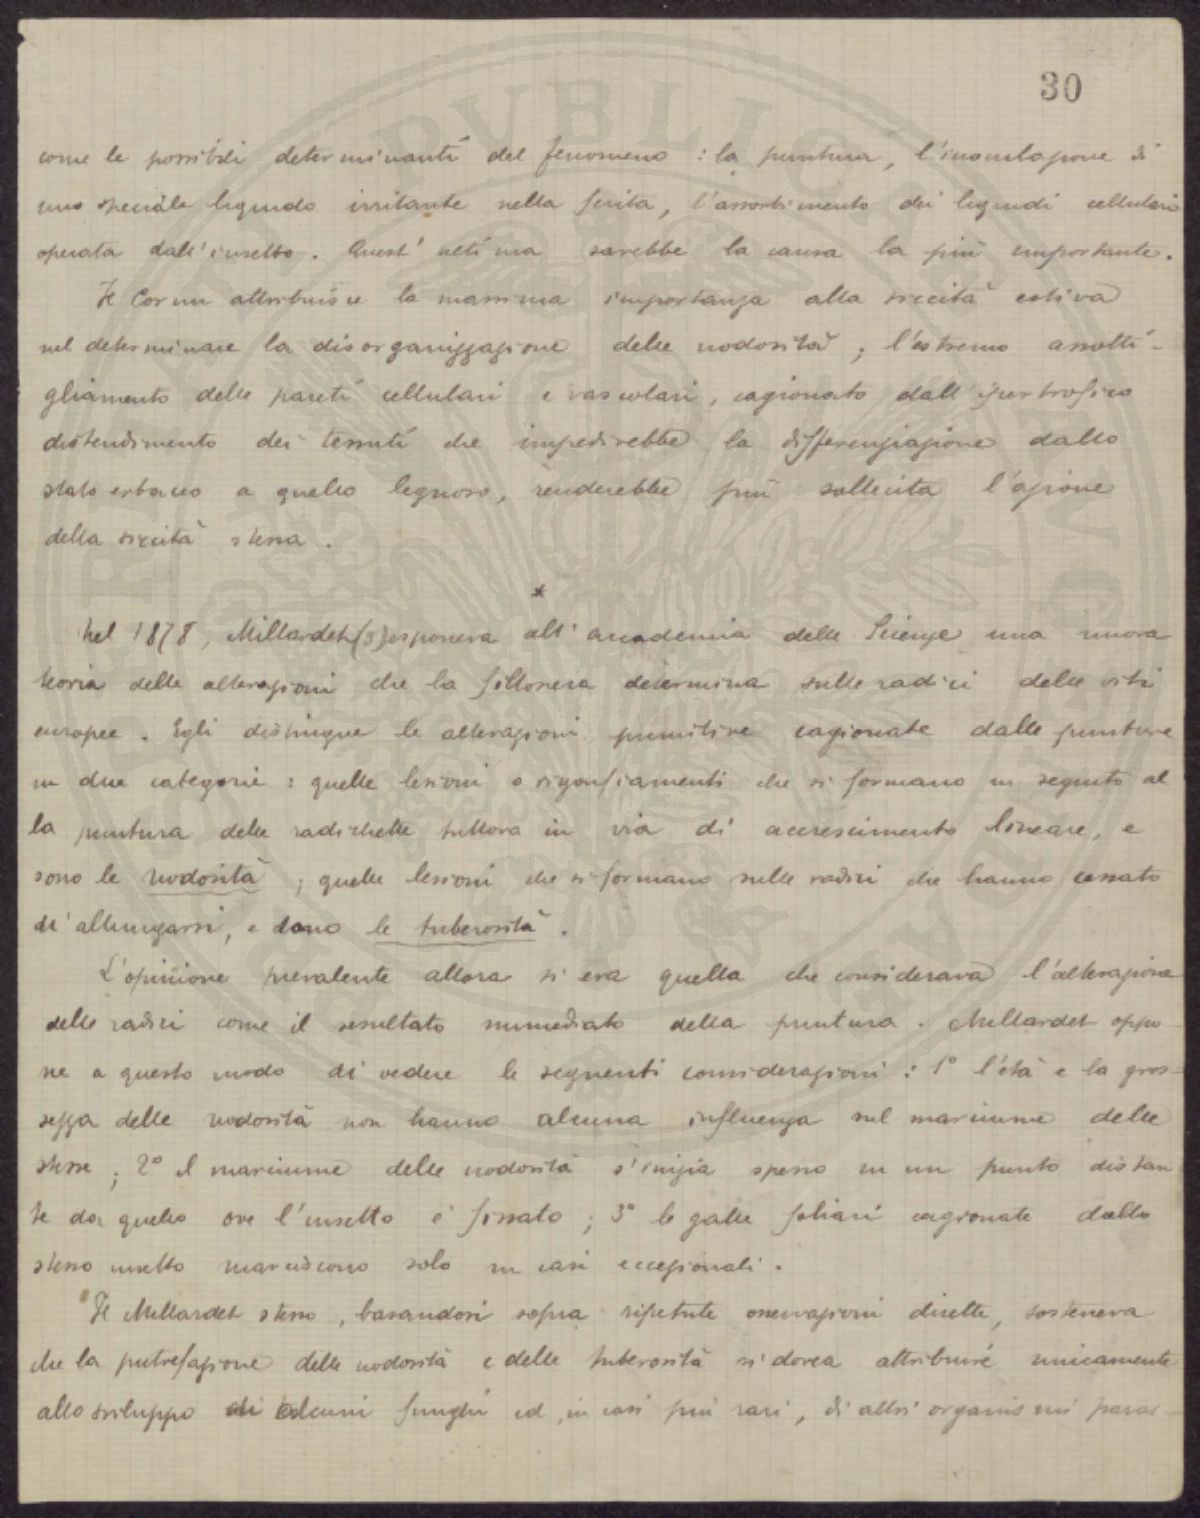 30
come le possibili determinanti del fenomeno : la puntura, l'inoculazione di
uno speciale liquido irritante nella ferita, l'assorbimento dei liquidi cellulari
operata dall'insetto. Quest'ultima sarebbe la causa la più importante.
Il Cornu attribuisce la massima importanza alla siccità estiva
nel determinare la disorganizzazione delle nodosità ; l'estremo assotti-
gliamento delle pareti cellulari e vascolari, cagionato dall'ipertrofico
distendimento dei tessuti che impedirebbe la differenziazione dallo
stato erbaceo a quello legnoso, renderebbe più sollecita l'azione
della siccità stessa.
*
Nel 1878, Millardet (3) esponeva all'accademia delle Scienze una nuova
teoria delle alterazioni che la fillossera determina sulle radici delle viti
europee. Egli distingue le alterazioni primitive cagionate dalle punture
in due categorie : quelle lesioni o rigonfiamenti che si formano in seguito al
la puntura delle radichette tuttora in via di accrescimento lineare, e
sono le nodosità ; quelle lesioni che si formano sulle radici che hanno cessato
di allungarsi, e sono le tuberosità.
L'opinione prevalente allora si era quella che considerava l'alterazione
delle radici come il resultato immediato della puntura. Millardet oppo
ne a questo modo di vedere le seguenti considerazioni : 1° l'età e la gros-
sezza delle nodosità non hanno alcuna influenza sul marciume delle
stesse ; 2° il marciume delle nodosità s'inizia spesso in un punto distan
te da quello ove l'insetto è fissato ; 3° le galle foliari cagionate dallo
stesso insetto marciscono solo in casi eccezionali.
Il Millardet stesso, basandosi sopra ripetute osservazioni dirette, sosteneva
che la putrefazione delle nodosità e delle tuberosità si dovea attribuire unicamente
allo sviluppo di alcuni funghi ed, in casi più rari, di altri organismi paras-